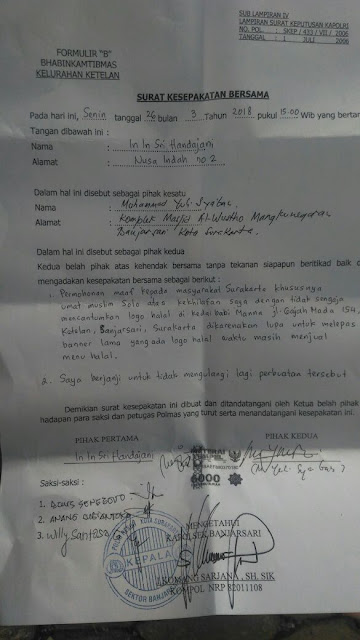 SUB LAMPIRAN IV
LAMPIRAN SURAT KEPUTUSAN KAPOLRI
NO. POL. : SKEP / 433 / VII / 2006
TANGGAL : 1 JULI 2006
FORMULIR "B"
BHABINKAMTIBMAS
KELURAHAN KETELAN
SURAT KESEPAKATAN BERSAMA
Pada hari ini, Senin tanggal 26 bulan 3 Tahun 2018 pukul 15.00 Wib yang bertan
Tangan dibawah ini :
Nama : In In Sri Handajani
Alamat : Nusa Indah no.2
Dalam hal ini disebut sebagai pihak kesatu
Nama : Mohammed Yuli
Alamat : Komplek Masjid Al-Wustho Mangkunegaran
Banjarsari Kota Surakarta.
Dalam hal ini disebut sebagai pihak kedua
Kedua belah pihak atas kehendak bersama tanpa tekanan siapapun beritikad baik
mengadakan kesepakatan bersama sebagai berikut :
1. Permohonan maaf kepada masyarakat Surakarta khususnya
umat muslim Solo atas kekhilafan saya dengan tidak sengaja
mencantumkan logo halal di kedai babi Manna jl. Gajah Mada 154,
Ketelan, Banjarsari, Surakarta dikarenakan lupa untuk melepas
banner lama yang ada logo halal waktu masih menjual
menu halal.
2. Saya berjanji untuk tidak mengulangi lagi perbuatan tersebut
Demikian surat kesepakatan ini dibuat dan ditandatangani oleh Kedua belah pihak
hadapan para saksi dan petugas Polmas yang turut serta menandatangani kesepakatan ini.
PIHAK PERTAMA
PIHAK KEDUA
In In Sri Handajani
6000
Saksi-saksi :
1.
2. ANANG
3. Willy Santosa
MENGETAHUI
KAPOLSEK BANJARSARI
KEPALA
SEKTOR BANJARSARI
I KOMANG SARJANA, SH. SIK
KOMPOL NRP 82011108